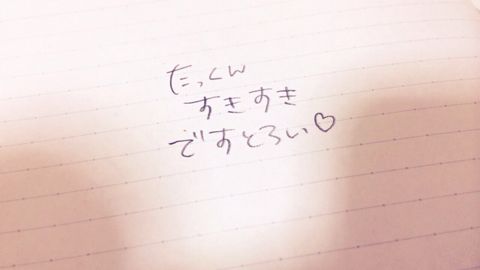 たっくん
すきすき
ですとろい♡